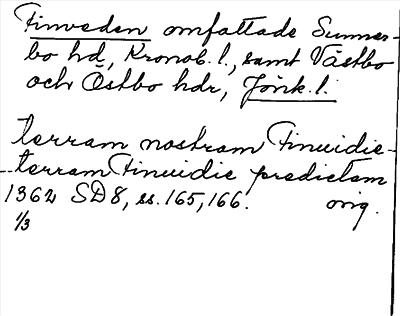 Finveden omfattade Sunner-
bo hd, Kronob. l., samt Västbo
och Östbo hdr, Jönk. l.
terram nostram Finuidie -
-- terram Finuidie predictam
1362 SD 8, ss. 165, 166. orig.
1/3